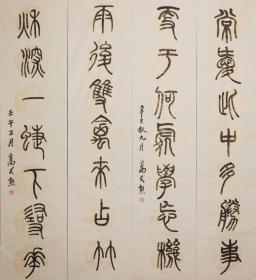 常愛此中多勝事
更于何處學忘機
辛巳秋九月 高式熊
雨後雙禽來占竹
秋深一蜨下尋花
壬午正月 高式熊